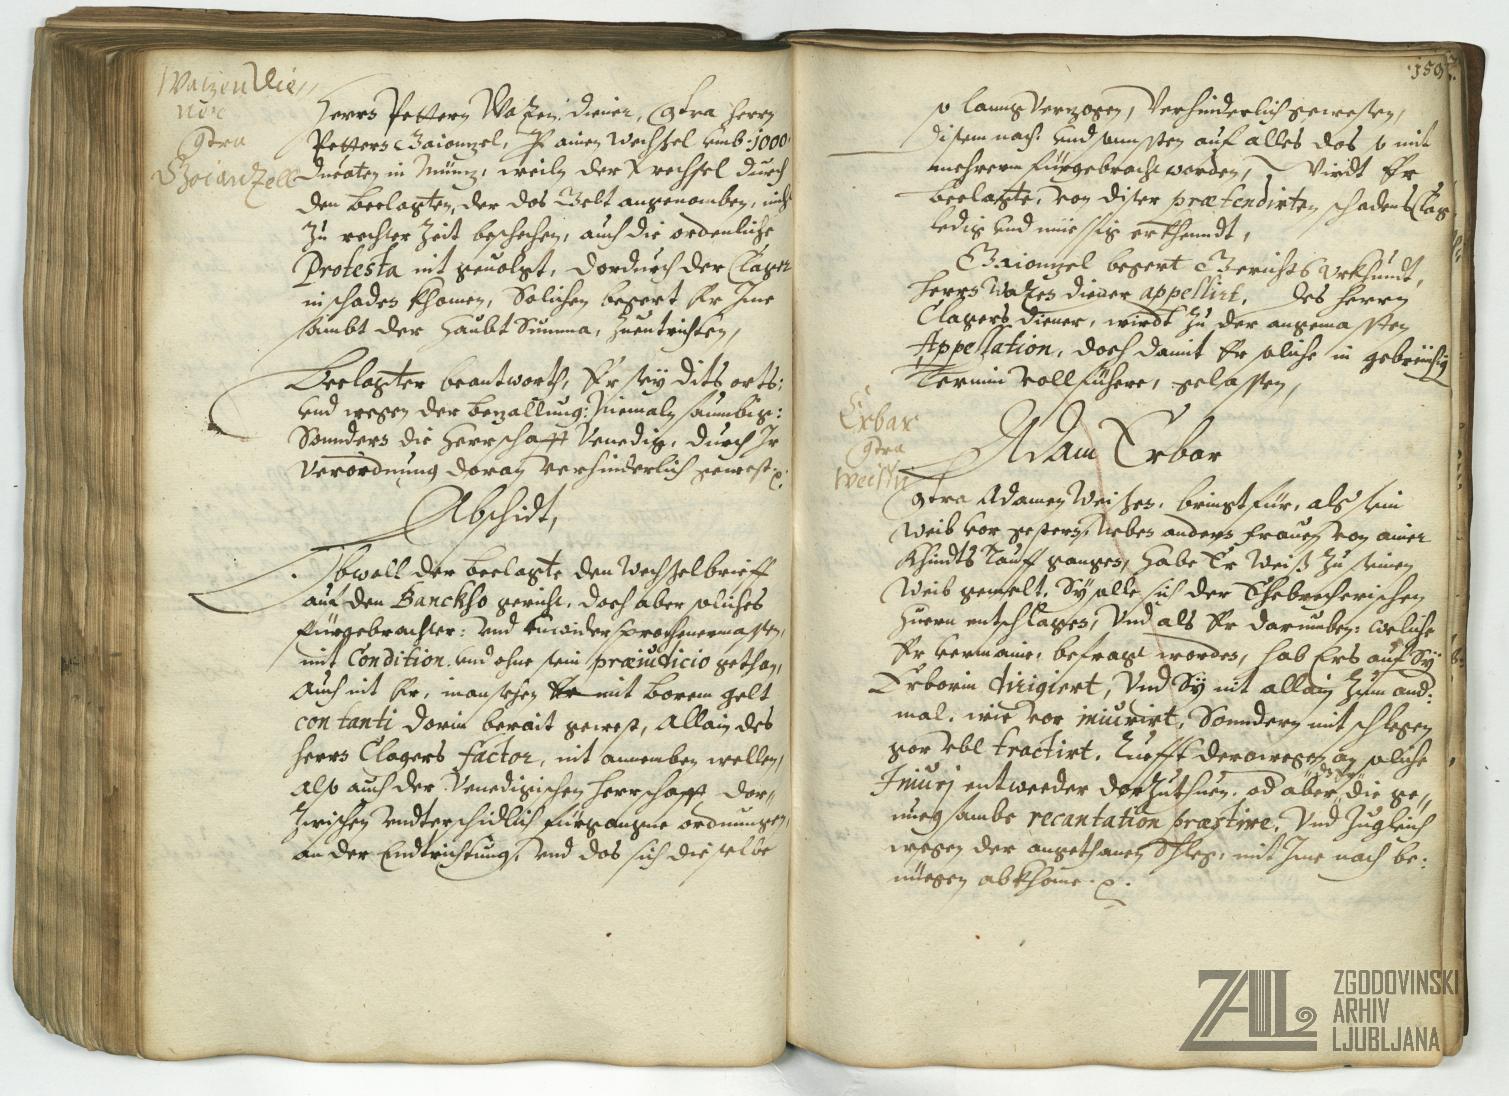 Watzen die„
ner
contra
Gioianzell
Herrn Pettern Watzen diener, contra herrn
Pettern Gaionzel, Per ainen wechsel umb .1000.
Ducaten in Münz, weiln der wechsel durch
den beclagten, der das Gelt angenomben, nicht
zu rechter Zeit beschechen, auch die ordenliche
Protesta nit geuolgt, dardurch der Clager
in schaden khomen, Solichen begert Er Ime
sambt der haubt Summa, zuentrichten,
Beclagter beantworth, Er sey dits orts,
und wegen der bezallung: Niemaln saumbig:
Sonndern die Herrschafft Venedig, durch Ir
verordnung daran verhinderlich gewest.
Abschidt,
Obwoll der beclagte den wechselbrieff
auf den Banckho gericht, doch aber soliches
fürgebrachter: und unwidersprochnermassen,
mit Condition und ohne sein præiudicio gethan,
Auch nit Er, inansechen Er mit barem gelt
contanti darin berait gewest, Allain des
herrn Clagers factor, nit annemben wellen,
also auch der Venedigischen herrschafft dar„
zwischen underschidlich fürgangne ordnungen,
an der Entrichtung, und das sich dieselbe
.159
so lanng verzogen, verhinderlich gewessen,
disem nach: und sunsten auf alles das so mit
mehrerm fürgebracht worden, Wirdt Er
beclagte, von diser prætendirten schadens Clag
ledig und müessig erkhenndt,
Gaionzel begert Gerichts Urkhundt,
herrn Watzen diener appellirt, des herrn
Clagers diener, wirdt zu der angemassten
Appellation, doch damit Er soliche in gebreichig
Termin vollfüehre, gelassen,
Erbar
contra
Weissn
Adam Erbar
contra Adamen Weissen, bringt für, als sein
Weib vor gestern, neben andern frauen von ainer
Khindts Tauff gangen, habe Er Weiß zu seinem
Weib gemelt, Sy solle sich der Ehebrecherischen
Huern entschlagen, Und als Er darumben: weliche
Er vermaine, befragt worden, hab Ers auf Sy
Erbarin dirigiert, Und Sy nit allain zum and:
mal, wie vor iniurirt, Sonndern mit schlegen
gar übl tractirt. Rüefft derowegen an soliche
Iniurj entweeder darzuthuen, od aber die ge„
nuegsambe recantation præstire, Und zugleich
wegen der angethanen Schleg, mit Ime nach be:
nüegen abkhome.
ZAL
ZGODOVINSKI
ARHIV
LJUBLJANA